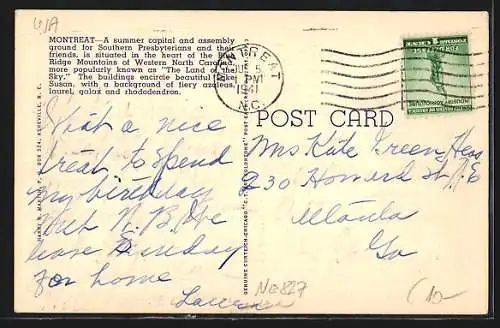 USA
MONTREAT—A summer capital and assembly
ground for Southern Presbyterians and their
friends, is situated in the heart of the Blue
Ridge Mountains of Western North Carolina,
more popularly known as "The Land of the
Sky." The buildings encircle beautiful Lake
Susan, with a background of fiery azaleas,
laurel, galax and rhododendron.
MONTREAT
PM
1941
N.C.
1 CENT 1
INDUSTRY AGRICULTURE
FOR DEFENSE
POST CARD
What a nice
treat to spend
my birthday
with N.B. We
leave Sunday
for home
Laura
Mrs Kate Green Hess
230 Howard St N.E
Atlanta
Ga
ASHEVILLE, N. C.
GENUINE CURTEICH-CHICAGO "C. T. COLORTONE" POST CARD
NE827
(10-